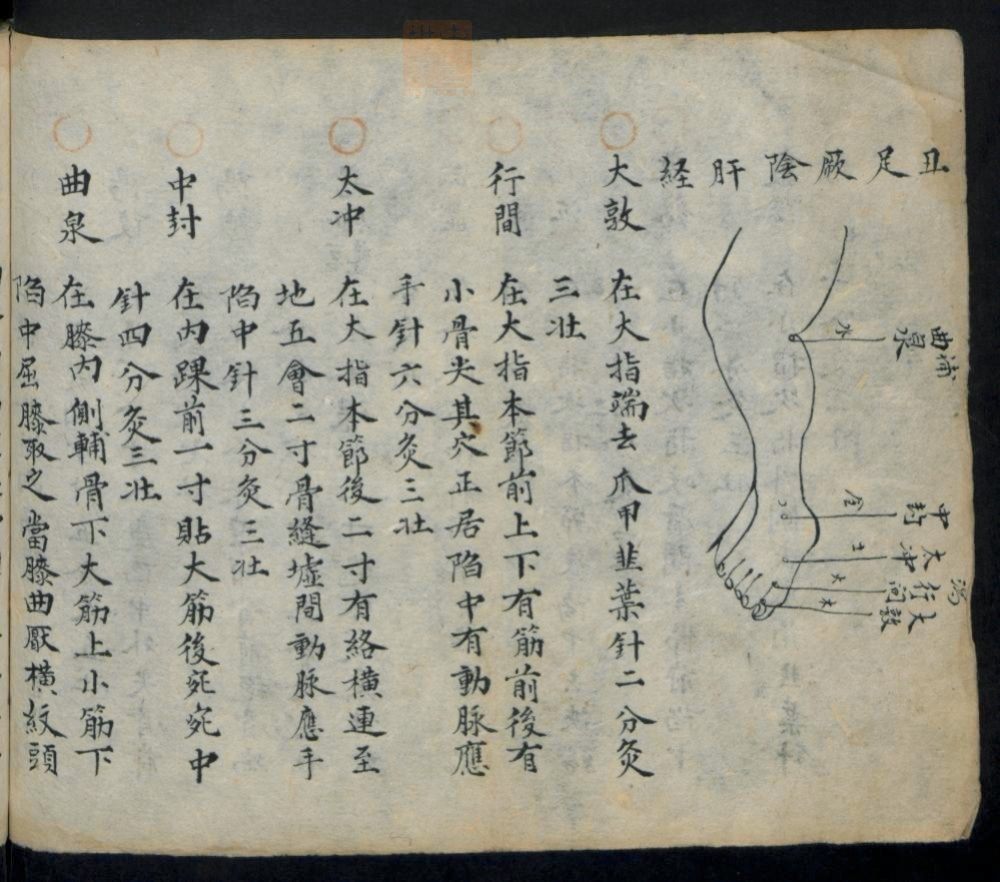 丑足厥陰肝経
曲泉 補
水
中封
金
太冲
土
行间
火
瀉
大敦
木
大敦 在大指端去爪甲韭葉針二分灸
三壮
行間 在大指本節前上下有筋前後有
小骨尖其穴正居陷中有動脉應
手針六分灸三壮
太冲 在大指本節後二寸有絡横連至
地五會二寸骨縫墟間動脉應手
陷中針三分灸三壮
中封 在内踝前一寸貼大筋後宛宛中
針四分灸三壮
曲泉 在膝内側輔骨下大筋上小筋下
陷中屈膝取之當膝曲厭横紋頭